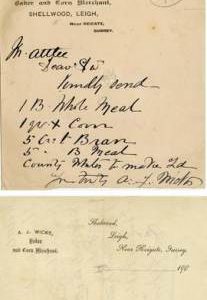 Baker and Corn Merchant,
SHELLWOOD, LEIGH,
Near REIGATE,
SURREY.
Mr. Attlee
Dear Sir
Kindly send
1 B. Whole Meal
Corn
5 Bran
5 B Meal
County to made
A. J. Wicks
A. J. WICKS,
Baker
and Corn Merchant.
Shellwood,
Leigh,
Near Reigate, Surrey.
190